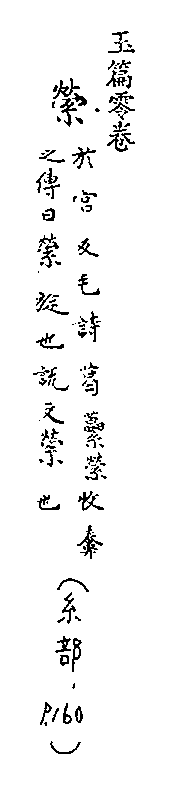 玉篇零卷
縈
於宮反毛詩葛藟縈
之傳曰縈旋也說文縈也
(糸部,P.160)